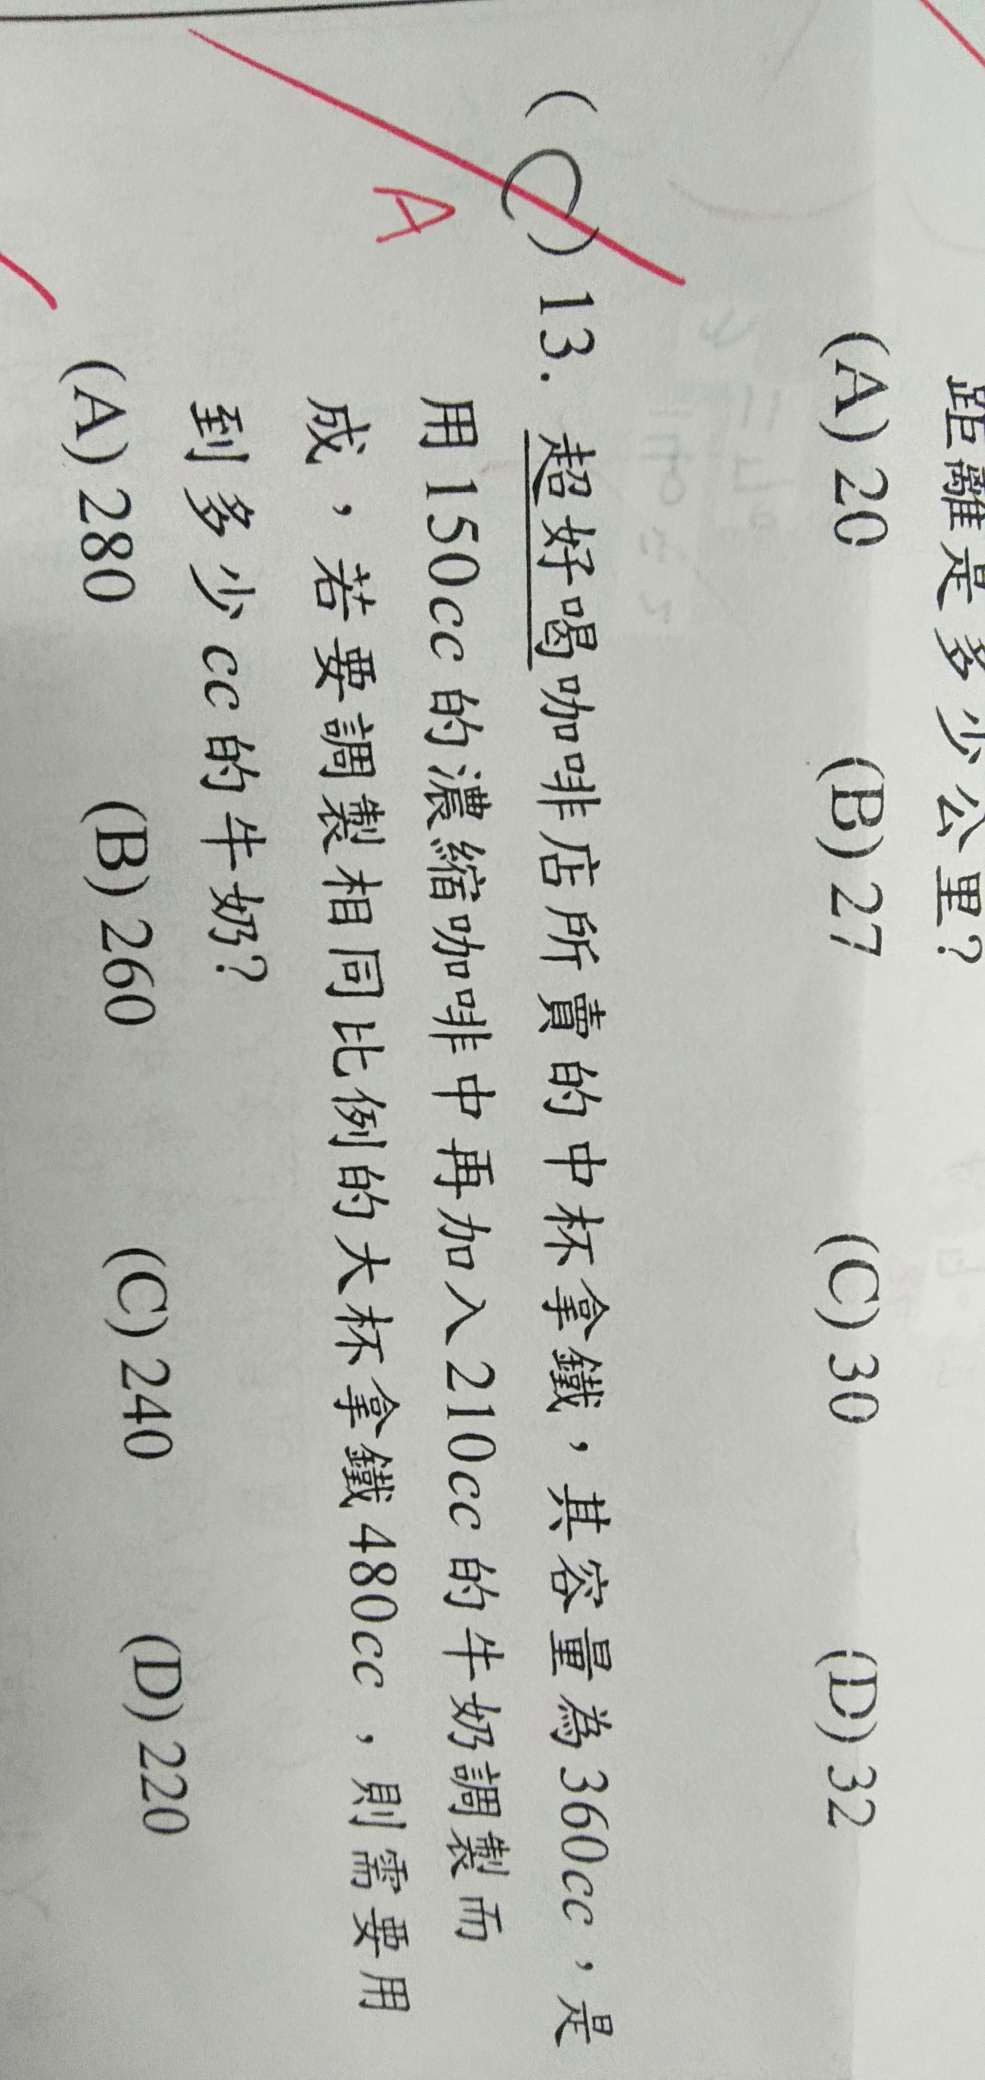 距離是多少公里?
(A) 20 (B) 27 (C) 30 (D) 32
( C ) 13. 超好喝咖啡店所賣的中杯拿鐵，其容量為360cc，是
A
用150cc的濃縮咖啡中再加入210cc的牛奶調製而
成，若要調製相同比例的大杯拿鐵480cc，則需要用
到多少cc的牛奶?
(A) 280 (B) 260 (C) 240 (D) 220